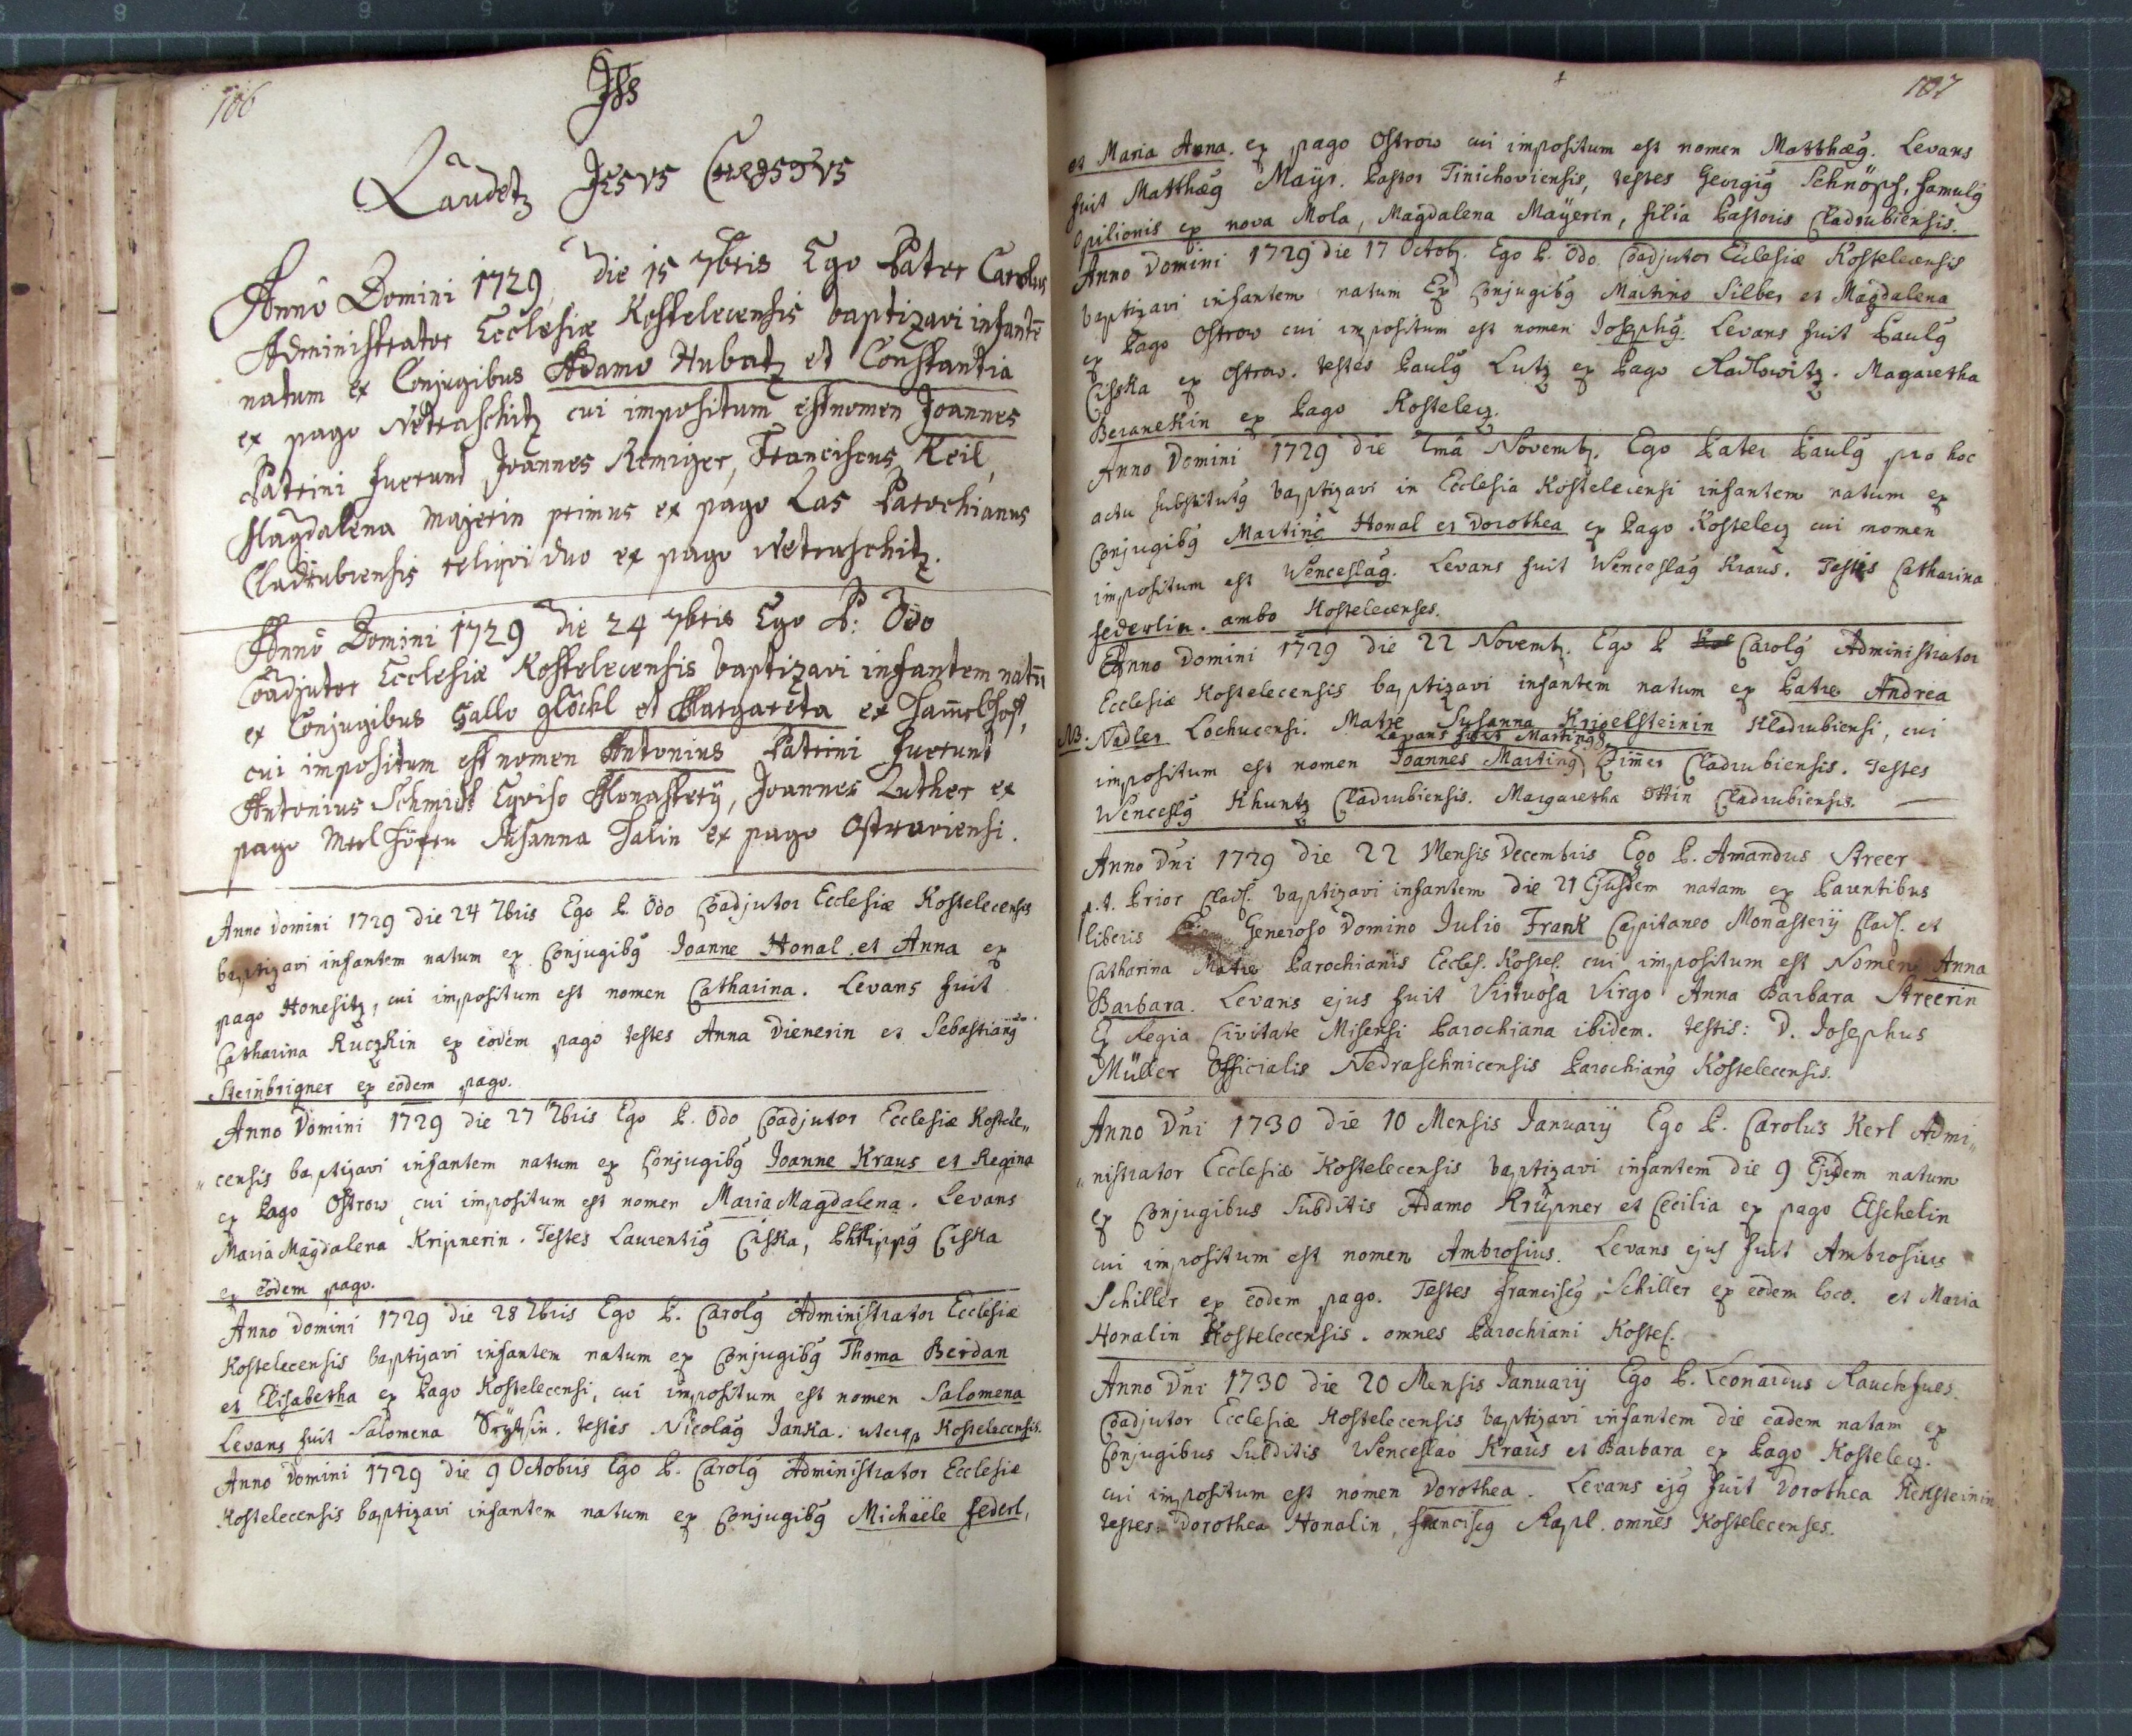 106
IHS
Laudetz IESVS CHRISTVS
Anno Domini 1729 die 15 7bris Ego Pater Carolus
Administrator Ecclesiæ Kostelecensis baptizavi infantē
natum ex Conjugibus Adamo Hubatz et Constantia
ex pago Netraschitz cui impositum est nomen Joannes
Patrini fuerunt Joannes Remiger, Franciscus Keil,
Magdalena Majerin primus ex pago Las Parochianus
Cladrubiensis reliqui duo ex pago Netraschitz.
Anno Domini 1729 die 24 7bris Ego P: Odo
Coadjutor Ecclesiæ Kostelecensis baptizavi infantem natū
ex Conjugibus Gallo Glöckl et Margareta ex Ham̄elhoff,
cui impositum est nomen Antonius Patrini fuerunt
Antonius Schmidt Monasterÿ, Joannes Luther ex
pago Susanna Halin ex pago Ostroviensi.
Anno Domini 1729 die 24 7bris Ego P. Odo Coadjutor Ecclesiæ Kostelecensis
baptizavi infantem natum ex Conjugibꝰ Joanne Honal et Anna ex
pago Honesitz, cui impositum est nomen Catharina. Levans fuit
Catharina Ruczkin ex eodem pago testes Anna Dienerin et Sebastianꝰ
Steinbrigner ex eodem pago.
Anno Domini 1729 die 27 7bris Ego P. Odo Coadjutor Ecclesiæ Kostele„
„censis baptizavi infantem natum ex Conjugibꝰ Joanne Kraus et Regina
ex Pago Ostrow, cui impositum est nomen Maria Magdalena. Levans
Maria Magdalena Kripnerin. Testes Laurentiꝰ Cisska, Philippꝰ Cisska
ex eodem pago.
Anno Domini 1729 die 28 7bris Ego P. Carolꝰ Administrator Ecclesiæ
Kostelecensis baptizavi infantem natum ex Conjugibꝰ Thoma Beidan
et Elisabetha ex Pago Kostelecensi, cui impositum est nomen Salomena
Levans fuit Salomena testes Nicolaꝰ Janka. uterqꝫ Kostelecensis.
Anno Domini 1729 die 9 Octobris Ego P. Carolꝰ Administrator Ecclesiæ
Kostelecensis baptizavi infantem natum ex Conjugibꝰ Michaële Federl,
107
et Maria Anna. ex pago Ostrow cui impositum est nomen Matthæꝰ. Levans
fuit Matthæꝰ Mayr. Pastor Tinichoviensis, testes Georgiꝰ Schnöpf, famulꝰ
Opilionis ex nova Mola, Magdalena Mayerin, filia Pastoris Cladrubiensis.
Anno Domini 1729 die 17 Octobr. Ego P. Odo Coadjutor Ecclesiæ Kostelecensis
baptizavi infantem natum Ex Conjugibꝰ Martino Silber et Magdalena
ex Pago Ostrow cui impositum est nomen Josephꝰ. Levans fuit Paulꝰ
Cisska ex Ostrow. testes Paulꝰ Lutz ex Pago Radlowitz. Magaretha
Beranekin ex Pago Kostelecz.
Anno Domini 1729 die 7mâ Novemb. Ego Pater Paulꝰ pro hoc
actu substitutꝰ baptizavi in Ecclesia Kostelecensi infantem natum ex
Conjugibꝰ Martino Honal et Dorothea ex Pago Kostelecz cui nomen
impositum est Wenceslaꝰ. Levans fuit Wenceslaꝰ Kraus. Testis Catharina
Federlin. ambo Kostelecenses.
Anno Domini 1729 die 22 Novemb. Ego P Carolꝰ Administrator
Ecclesiæ Kostelecensis baptizavi infantem natum ex Patre Andrea
NB. Nadler Lochucensi. Matre Susanna Krigelsteinin Kladrubiensi, cui
Levans fuit Martinꝰ
impositum est nomen Joannes Martinꝰ Zim̄er Cladrubiensis. Testes
Wenceslꝰ Khuntz Cladrubiensis. Margaretha Ottin Cladrubiensis.
Anno Dn̄i 1729 die 22 Mensis Decembris Ego P. Amandus Streer
p.t. Prior Clad. baptizavi infantem die 21 Ejusdem natam ex Parentibus
liberis Generoso Domino Julio Frank Capitaneo Monasterÿ Clad. et
Catharina Matre Parochianis Eccles. Kostel. cui impositum est Nomen Anna
Barbara. Levans ejus fuit Virtuosa Virgo Anna Barbara Streerin
Ex Regia Civitate Misensi Parochiana ibidem. testis: D. Josephus
Müller Officialis Nedraschnicensis Parochianꝰ Kostelecensis.
Anno Dn̄i 1730 die 10 Mensis Januarÿ Ego P. Carolus Kerl Admi„
„nistrator Ecclesiæ Kostelecensis baptizavi infantem die 9 Ejusdem natum
ex Conjugibus Subditis Adamo Krüpner et Cecilia ex pago Elschelin
cui impositum est nomen Ambrosius. Levans ejus fuit Ambrosius
Schiller ex eodem pago. Testes Franciscꝰ Schiller ex eodem loco. et Maria
Honalin Kostelecensis. omnes Parochiani Kostel.
Anno Dn̄i 1730 die 20 Mensis Januarÿ Ego P. Leonardus Rauchfues.
Coadjutor Ecclesiæ Kostelecensis baptizavi infantem die eadem natam ex
Conjugibus Subditis Wenceslao Kraus et Barbara ex Pago Kostelecz.
cui impositum est nomen Dorothea. Levans ejꝰ fuit Dorothea Keksteinin
testes: Dorothea Honalin, Franciscꝰ Rapl. omnes Kostelecenses.